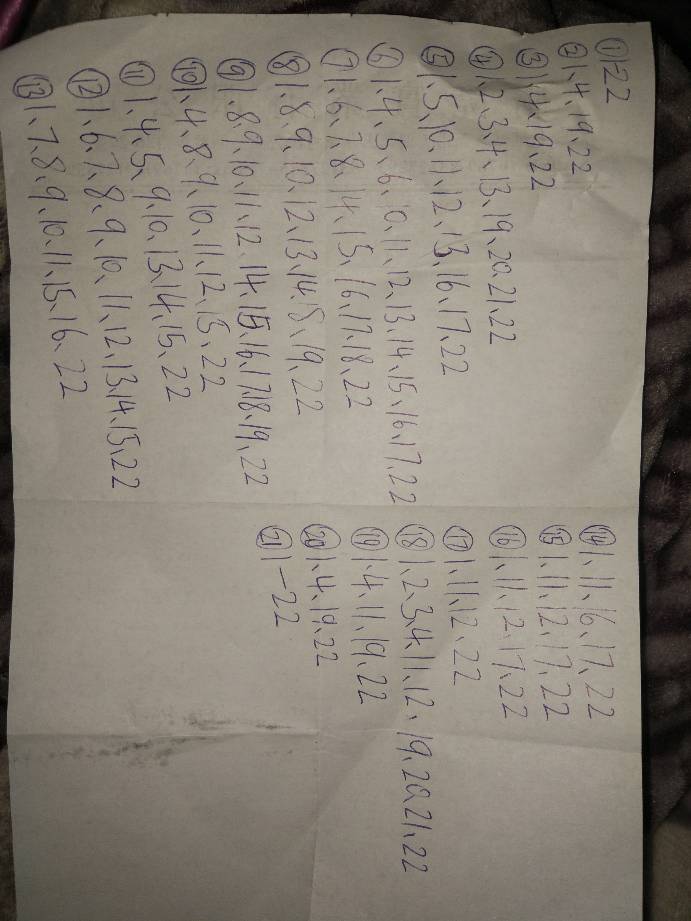 ① 1、22
② 1、4、19、22
③ 1、4、19、22
④ 1、2、3、4、13、19、20、21、22
⑤ 1、5、10、11、12、13、16、17、22
⑥ 1、4、5、6、10、11、12、13、14、15、16、17、22
⑦ 1、6、7、8、14、15、16、17、18、22
⑧ 1、8、9、10、12、13、14、15、19、22
⑨ 1、8、9、10、11、12、14、15、16、17、18、19、22
⑩ 1、4、8、9、10、11、12、15、22
⑪ 1、4、5、9、10、13、14、15、22
⑫ 1、6、7、8、9、10、11、12、13、14、15、22
⑬ 1、7、8、9、10、11、15、16、22
⑭ 1、11、16、17、22
⑮ 1、11、12、17、22
⑯ 1、11、12、17、22
⑰ 1、11、12、22
⑱ 1、2、3、4、11、12、19、20、21、22
⑲ 1、4、11、19、22
⑳ 1、4、19、22
㉑ 1—22